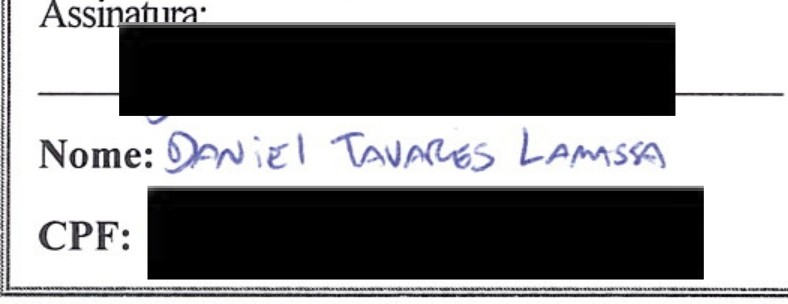 Assinatura:
Nome: DANIEL TAVARES
CPF: